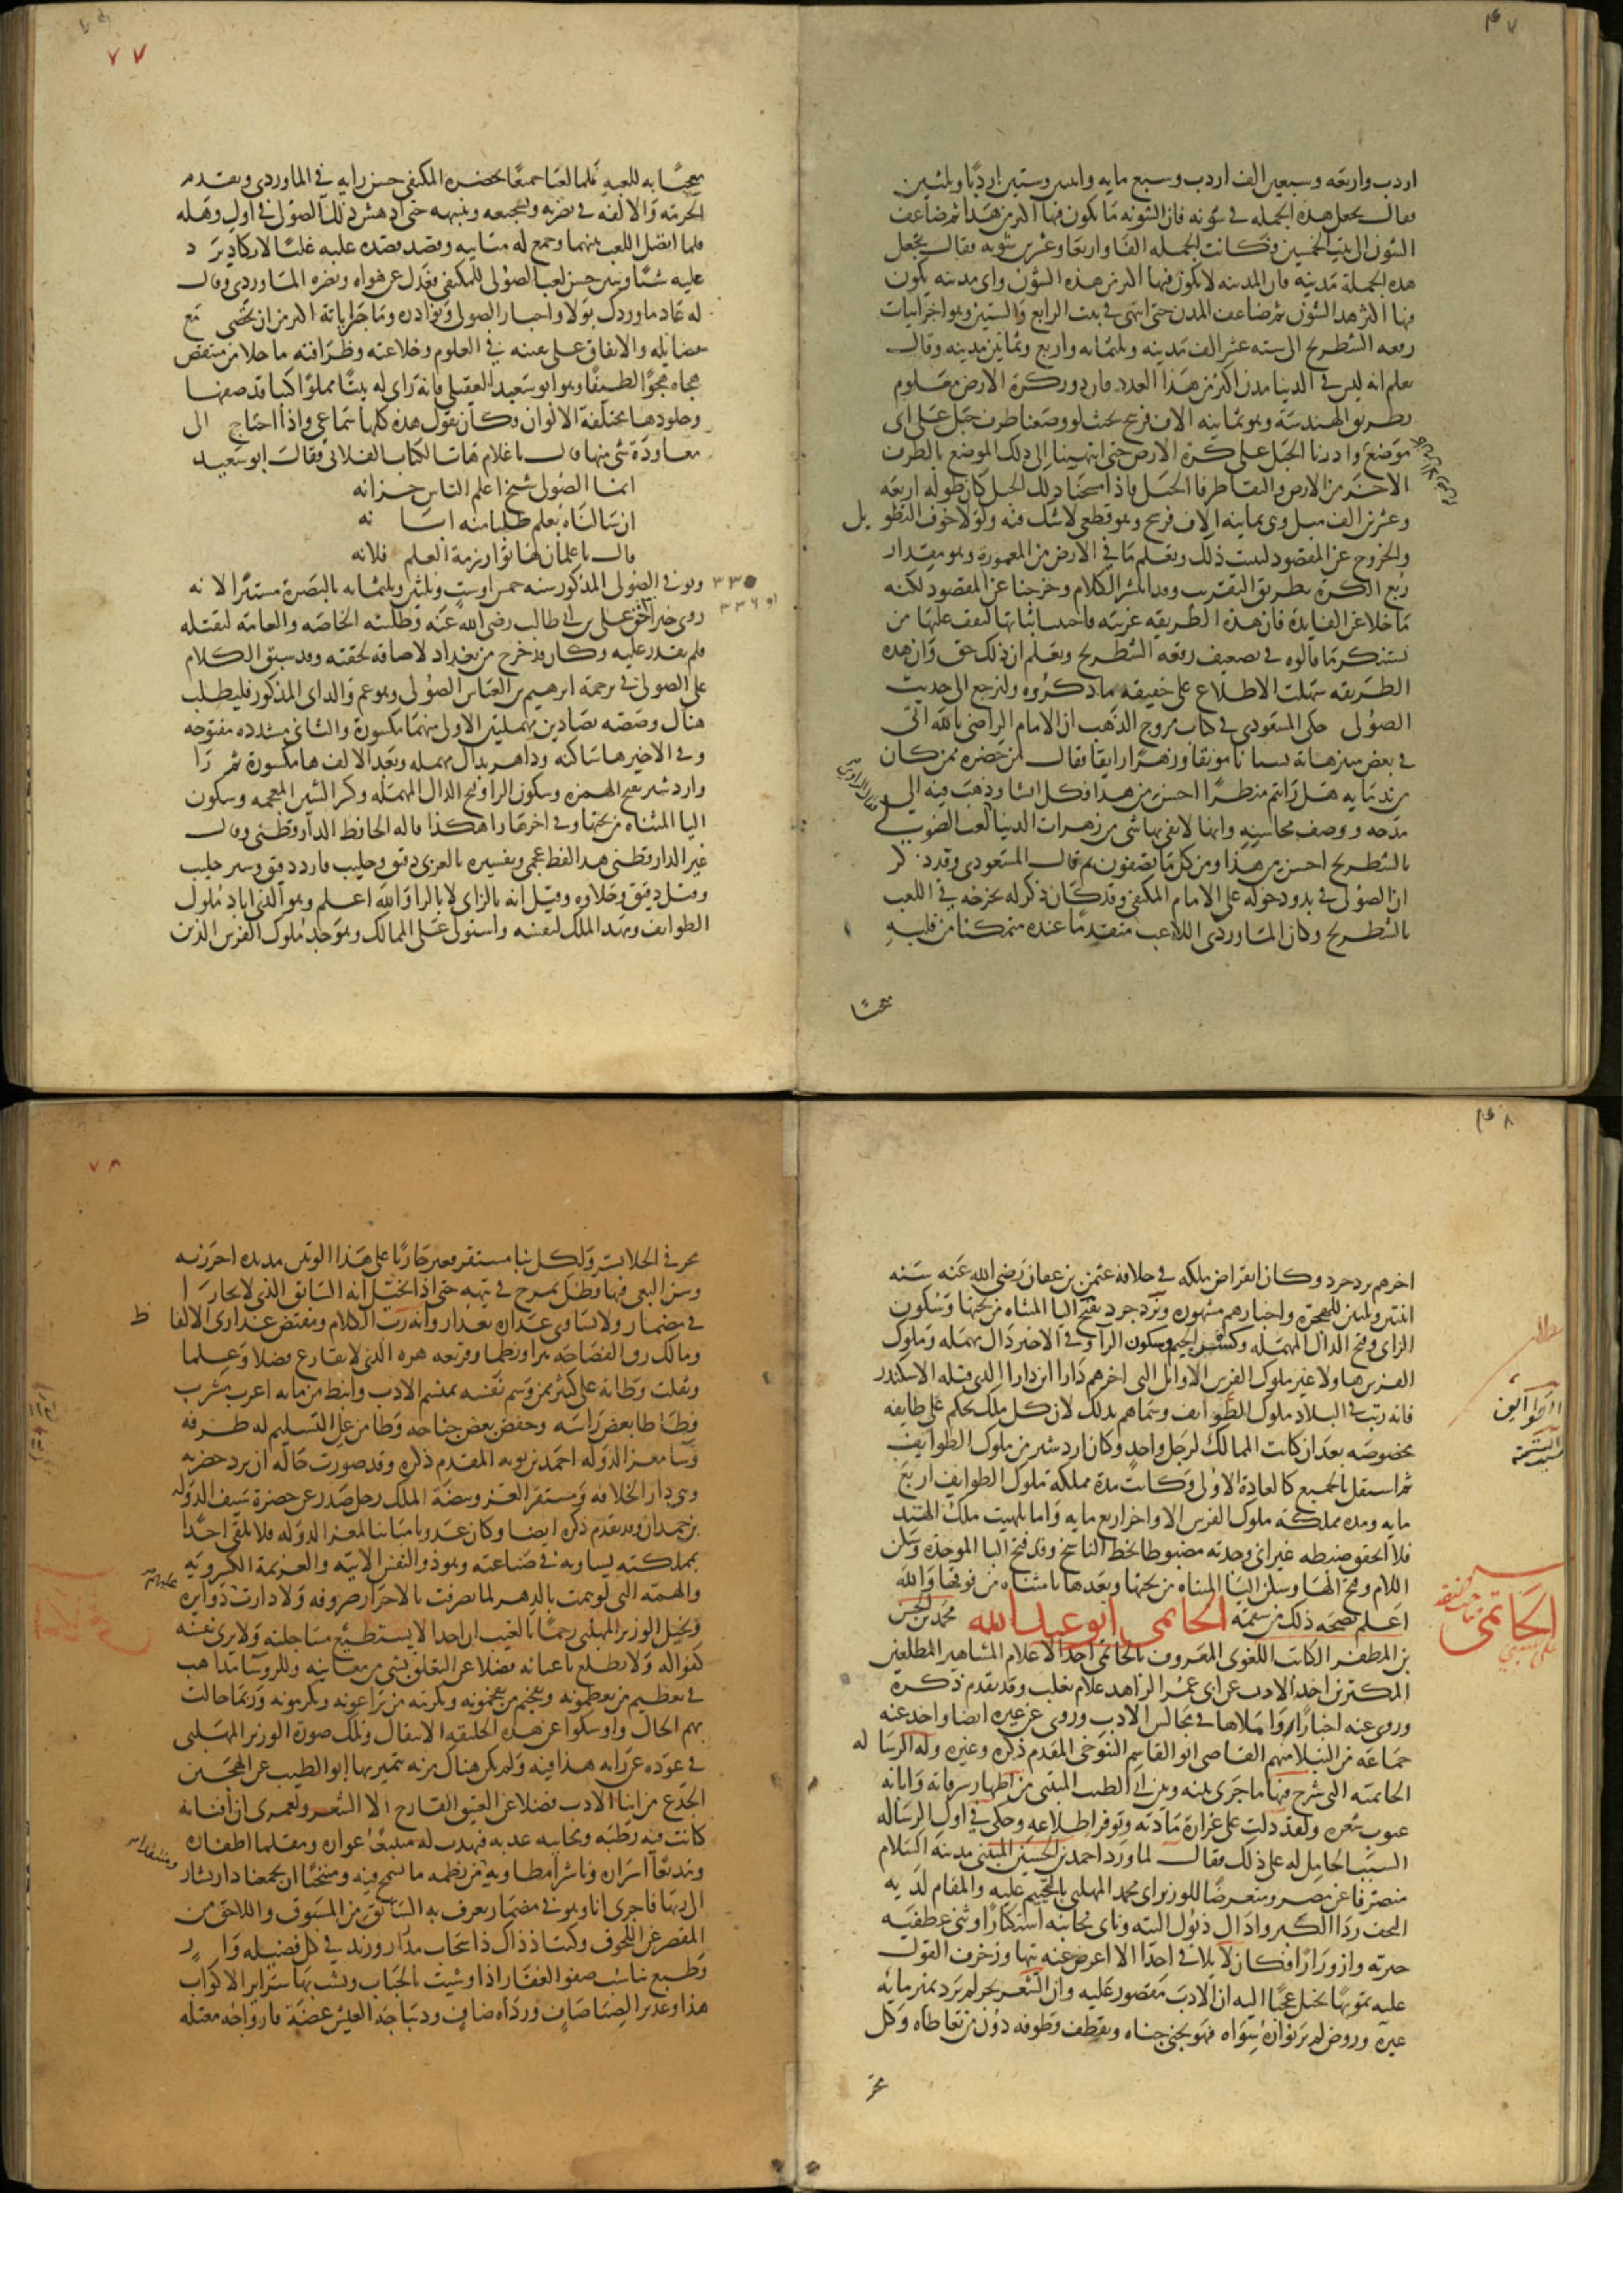 اردب واربعه وسبعين الف اردب وسبع مايه واثنين وستين اردبا وثلثين
فقال يجعل هذه الجمله في شونه فان الشونه ما يكون فيها اكثر من هذا ثم ضاعف
الشون الى بيت الخمسين فكانت الجمله الفا واربعا وعشرين شونه فقال يجعل
هذه الجملة مدينه فان المدينه لا يكون فيها اكثر من هذه الشون واى مدينه يكون
فيها اكثر هذا الشون ثم ضاعف المدن حتى انتهى في بيت الرابع والستين وهو اخر ابيات
رقعه الشطرنج الى سته عشر الف مدينه وثلثمايه واربع وثمانين مدينه وقال
تعلم انه ليس في الدنيا مدن اكثر من هذا العدد فان دور كرة الارض معلوم
بطريق الهندسة وهو ثمانيه الاف فرسخ بحيث لو وضعنا طرف حبل على اى
موضع وادرنا الحبل على كرة الارض حتى انتهينا الى ذلك الموضع بالطرف
الاخر من الارض والتقا طرفا الحبل فاذا مسحنا ذلك الحبل كان طوله اربعه
وعشرين الف ميل وهى ثمانيه الاف فرسخ وهو قطعى لا شك فيه ولولا خوف التطويل
والخروج عن المقصود لبينت ذلك وتعلم ما في الارض من المعمورة وهو مقدار
ربع الكرة بطريق التقريب وقد انتشر الكلام وخرجنا عن المقصود لكنه
ما خلا عن الفايدة فان هذه الطريقه غريبه فاحببت اثباتها ليقف عليها من
يستنكر ما قالوه في تضعيف رقعه الشطرنج ويعلم ان ذلك حق وان هذه
الطريقه سهلت الاطلاع على حقيقه ما ذكروه ولنرجع الى حديث
الصولى حكى المسعودى في كتاب مروج الذهب ان الامام الراضى بالله اتى
في بعض متنزهاته بستانا مونقا وزهرا رايقا فقال لمن حضره ممن كان
من ندمايه هل رايتم منظرا احسن من هذا فكل اثنا وذهب فيه الى
مدحه ووصف محاسنه وانها لا يفى بها شى من زهرات الدنيا لعب الصولى
بالشطرنج احسن من هذا ومن كل ما تصفون ثم قال المسعودى وقد ذكر
ان الصولى في بدو دخوله على الامام المكتفى وقد كان ذكر له تخرجه في اللعب
بالشطرنج وكان الماوردى اللاعب متقدما عنده متمكنا من قلبه
معجبا به للعبه فلما لعبا جميعا بحضره المكتفى حسن رايه في الماوردى وتقدم
الحرمه والالفه في نصرته وتشجيعه وتنبيهه حتى ادهش ذلك الصولى في اول وهله
فلما اتصل اللعب بينهما وجمع له متانته وقصد قصده عليه غلبا لا يكاد يرد
عليه شيا وتبين حسن لعب الصولى للمكتفى فعدل عن هواه ونصره الماوردى وقال
له عاد ماوردك بولا واخبار الصولى ونوادره وما جراياته اكثر من ان تحصى مع
فضايله والاتفاق على تفننه في العلوم وخلاعته وظرافته ما خلا من منتقص
هجاه هجوا لطيفا وهو ابو سعيد العقيلى فانه راى له بيتا مملوا كتبا قد صفها
وجلودها مختلفة الالوان وكان يقول هذه كلها سماعى واذا احتاج الى
معاودة شى منها قال يا غلام هات الكتاب الفلانى فقال ابو سعيد
انما الصولى شيخ اعلم الناس خزانه
ان سالناه بعلم طلبا منه ابانه
قال يا غلمان هاتوا رزمة العلم فلانه
وتوفي الصولى المذكور سنه خمس اوست وثلثين وثلثمايه بالبصرة مستترا لانه
٣٣٥
او ٣٣٦
روى خبرا في حق على بن ابى طالب رضى الله عنه وطلبته الخاصه والعامة لتقتله
فلم تقدر عليه وكان قد خرج من بغداد لاضاقه لحقته وقد سبق الكلام
على الصولى في ترجمة ابرهيم بن العباس الصولى وهو عم والد ابى المذكور فليطلب
هناك وصصه بصادين مهملتين الاولى منهما مكسورة والثانى مشدده مفتوحه
وفى الاخير ها ساكنه وداهر بدال مهمله وبعد الالف ها مكسورة ثم را
واردشير بفتح الهمزه وسكون الرا وفتح الدال المهمله وكسر الشين المعجمه وسكون
اليا المثناه من تحتها وفى اخرها را هكذا قاله الحافظ الدارقطنى وقال
غير الدارقطنى هذا لفظ عجمى وتفسيره بالعربى دقيق وحليب فارد دقيق وشير حليب
وقيل دقيق وحلاوه وقيل انه بالزاى لا بالرا والله اعلم وهو الذى اباد ملوك
الطوايف ومهد الملك لنفسه واستولى على الممالك وهو جد ملوك الفرس الذين
اخرهم يزدجرد وكان انقراض ملكه في خلافه عثمن بن عفان رضى الله عنه سنه
اثنتين وثلثين للهجرة واخبارهم مشهوره ويزدجرد بفتح اليا المثناه من تحتها وسكون
الزاى وفتح الدال المهمله وكسر الجيم وسكون الرا وفى الاخير دال مهمله وملوك
الفرس هاولا غير ملوك الفرس الاوايل التى اخرهم دارا ابن دارا الذى قتله الاسكندر
فانه رتب في البلاد ملوك الطوايف وسماهم بذلك لان كل ملك يحكم على طايفه
مخصوصه بعد ان كانت الممالك لرجل واحد وكان اردشير من ملوك الطوايف
ثم استقل بالجميع كالعادة الاولى وكانت مدة مملكه ملوك الطوايف اربع
مايه ومده مملكة ملوك الفرس الاواخر اربع مايه واما بلهيت ملك الهند
فلا اتحقق ضبطه غير انى وجدته مضبوطا بخط الناسخ وقد فتح البا الموحدة وسكن
اللام وفتح الها وسكن اليا المثناه من تحتها وبعدها تا مثناه من فوقها والله
اعلم بصحه ذلك من سقمه الحاتمى ابو عبد الله محمد بن الحسن
الحاتمى
بن المظفر الكاتب اللغوى المعروف بالحاتمى احد الاعلام المشاهير المطلعين
المكثرين اخذ الادب عن ابى عمر الزاهد غلام ثعلب وقد تقدم ذكره
وروى عنه اخبارا واملاها في مجالس الادب وروى عن غيره ايضا واخذ عنه
جماعه من النبلا منهم القاضى ابو القاسم التنوخى المقدم ذكره وغيره وله الرساله
الحاتميه التى شرح فيها ما جرى بينه وبين ابى الطيب المتنبى من اظهار سرقاته وابانه
عيوب شعره ولقد دلت على غزارة مادته وتوفر اطلاعه وحكى في اول الرساله
السبب الحامل له على ذلك فقال لما ورد احمد بن الحسين المتنبى مدينة السلام
منصرفا عن مصر ومتعرضا للوزير ابى محمد المهلبى بالتخييم عليه والمقام لديه
التحف رداا الكبر واذال ذيول التيه وناى بجانبه استكبارا وثنى عطفيه
جبريه وازورارا فكان لا يلاقى احدا الا اعرض عنه تيها وزخرف القول
عليه تمويها يخيل عجبا اليه ان الادب مقصور عليه وان الشعر بحر لم يرد نمير مايه
غيره وروض لم ير نواره سواه فهو يجنى جناه ويقطف قطوفه دون من تعاطاه وكل
مجر في الخلا يسر ولكل نبا مستقر فغبر جاريا على هذا الوتيره مديده احررته
رسن البغى فيها وظل يمرح في تيهه حتى اذا تخيل انه السابق الذى لا يجارى
في مضمار ولا يساوى عذاره بعذار وانه رب الكلام ومفتض عذارى الالفاظ
ومالك رق الفصاحه نثرا ونظما وقريع دهره الذى لا يقارع فضلا وعلما
وثقلت وطاته على كثير ممن وسم نفسه بميسم الادب وانبط من مايه اعذب مشرب
فطاطا بعض راسه وخفض بعض جناحه وطامن على التسليم له طرفه
وسا معز الدوله احمد بن بويه المقدم ذكره وقد صورت حاله ان يرد حضرته
وهى دار الخلافه ومستقر العز وبيضة الملك رجل صدر عن حضرة سيف الدوله
بن حمدان وقد تقدم ذكره ايضا وكان عدوا مباينا لمعز الدوله فلا يلقى احدا
بمملكته يساويه في صناعته وهو ذو النفس الابيه والعزيمة الكسرويه
والهمه التى لو همت بالدهر لما تصرفت بالاحرار صروفه ولا دارت دوايره
وتخيل الوزير المهلبى رجما بالغيب ان احدا لا يستطيع مساجلته ولا يرى نفسه
كفوا له ولا يضطلع باعبائه فضلا عن التعلق بشى من معانيه وللروسا مذاهب
في تعظيم من يعظمونه وتفخيم من يفخمونه وتكرمه من يراعونه ويكرمونه وربما حالت
بهم الحال واوشكوا عن هذه الخليقه الانتقال وتلك صورة الوزير المهلبى
في عوده عن رايه هذا فيه ولم يكن هناك مزيه يتميز بها ابو الطيب عن الهجين
الجذع من ابنا الادب فضلا عن العتيق القارح الا الشعر ولعمرى ان افنانه
كانت فيه رطبه ومجانيه عذبه فنهدت له متتبعا عواره ومقلما اظفاره
ومذيعا اسراره وناشرا مطاويه من نظمه ما تسمح فيه ومنتحيا ان يجمعنا دار يشار
الى ربها فاجرى انا وهو في مضمار يعرف به السابق من المسبوق واللاحق من
المقصر عن اللحوق وكنت اذ ذاك ذا سحاب مدرار وزند في كل فضيله وار
وطبع يناسب صفو العقار اذا وشيت بالحباب ووشت بها سراير الاكواب
هذا وغدير الصبا صاف ورداه ضاف وديباجه العيش غضه وارواحه معتله